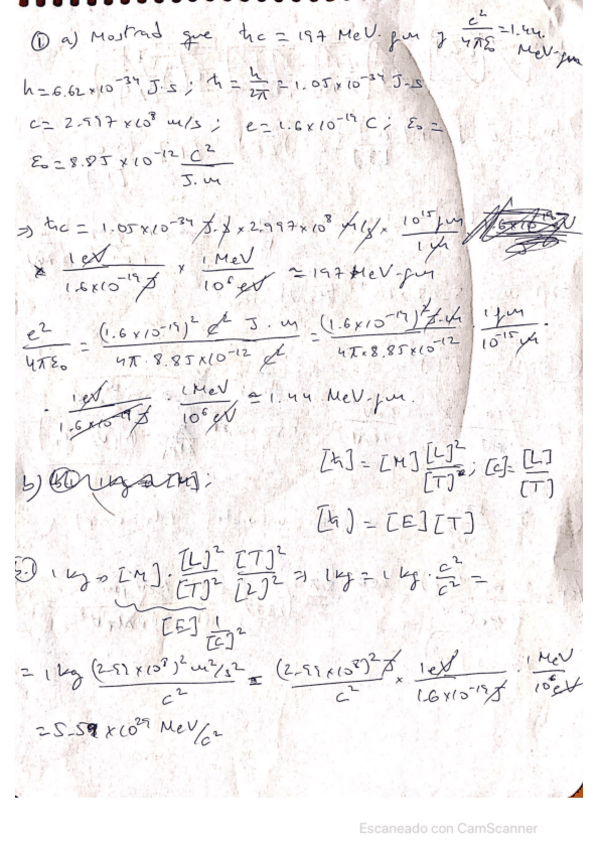 ① a) Mostrad que ħc = 197 MeV·fm y c²/4πε₀ = 1.44 MeV·fm
h = 6.62 × 10⁻³⁴ J·s ; ħ = h/2π = 1.05 × 10⁻³⁴ J·s
c = 2.997 × 10⁸ m/s ; e = 1.6 × 10⁻¹⁹ C ; ε₀ =
ε₀ = 8.85 × 10⁻¹² C²/J·m
⇒ ħc = 1.05 × 10⁻³⁴ J·s × 2.997 × 10⁸ m/s × 10¹⁵ fm/1 m
× 1 eV/1.6×10⁻¹⁹ J × 1 MeV/10⁶ eV ≃ 197 MeV·fm
e²/4πε₀ = (1.6 × 10⁻¹⁹)² C² J·m/4π · 8.85×10⁻¹² C² = (1.6 × 10⁻¹⁹)² J·m/4π × 8.85×10⁻¹² · 1 fm/10⁻¹⁵ m ·
· 1 eV/1.6×10⁻¹⁹ J · 1 MeV/10⁶ eV ≃ 1.44 MeV·fm.
[ħ] = [M] [L]²/[T]² ; [c] = [L]/[T]
b) 1 kg [M] ;
[ħ] = [E][T]
1 kg → [M] · [L]²/[T]² [T]²/[L]² ⇒ 1 kg = 1 kg · c²/c² =
[E] 1/[c]²
= 1 kg (2.99 × 10⁸)² m²/s²/c² = (2.99 × 10⁸)² J/c² × 1 eV/1.6×10⁻¹⁹ J · 1 MeV/10⁶ eV
= 5.59 × 10²⁹ MeV/c²
Escaneado con CamScanner